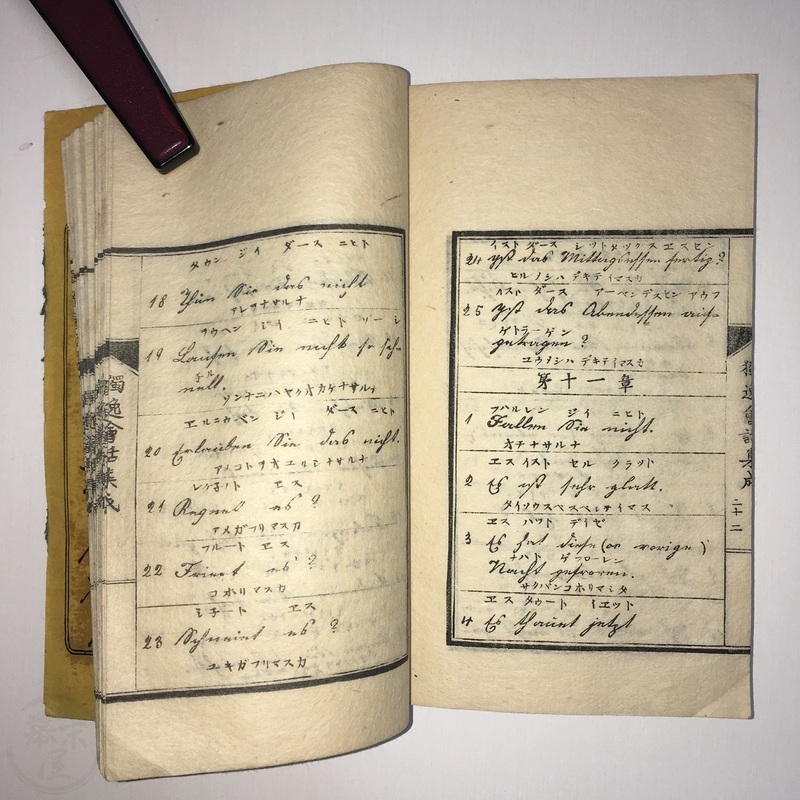 タウン ジイ ダース ニヒト
18 Thun Sie das nicht
アレヲナサルナ
ラウヘン ジイ ニヒト
19 Laufen Sie nicht so sch-
nell.
ソンナニハヤクオカケナサルナ
エルラウベン ジイ ダース ニヒト
20 Erlauben Sie das nicht.
アノコトヲオユルシナサルナ
21 Regnet es?
アメガフリマスカ
フルート ヱス
22 Friert es?
コホリマスカ
ヱス
23 Schneiet es?
ユキガフリマスカ
獨逸會話集成
イスト ダース ミットタックス ヱスセン
24 Ist das Mittagsessen fertig?
ヒルノシハデキテイマスカ
イスト ダース アーベンデスセン アウフ
25 Ist das Abendessen auf-
ゲトラーゲン
getragen?
ユウノシハデキテイマスカ
第十一章
フハルレン ジイ ニヒト
1 Fallen Sie nicht.
オチナサルナ
ヱス イスト セル クラット
2 Es ist sehr glatt.
タイソウスベスベシテイマス
ヱス ハット デイゼ
3 Es hat diese (or vorige)
ナハト ゲフローレン
Nacht gefroren.
サクバンコホリマシタ
ヱス タウート イヱット
4 Es thauet jetzt
獨逸會話集成
二十二